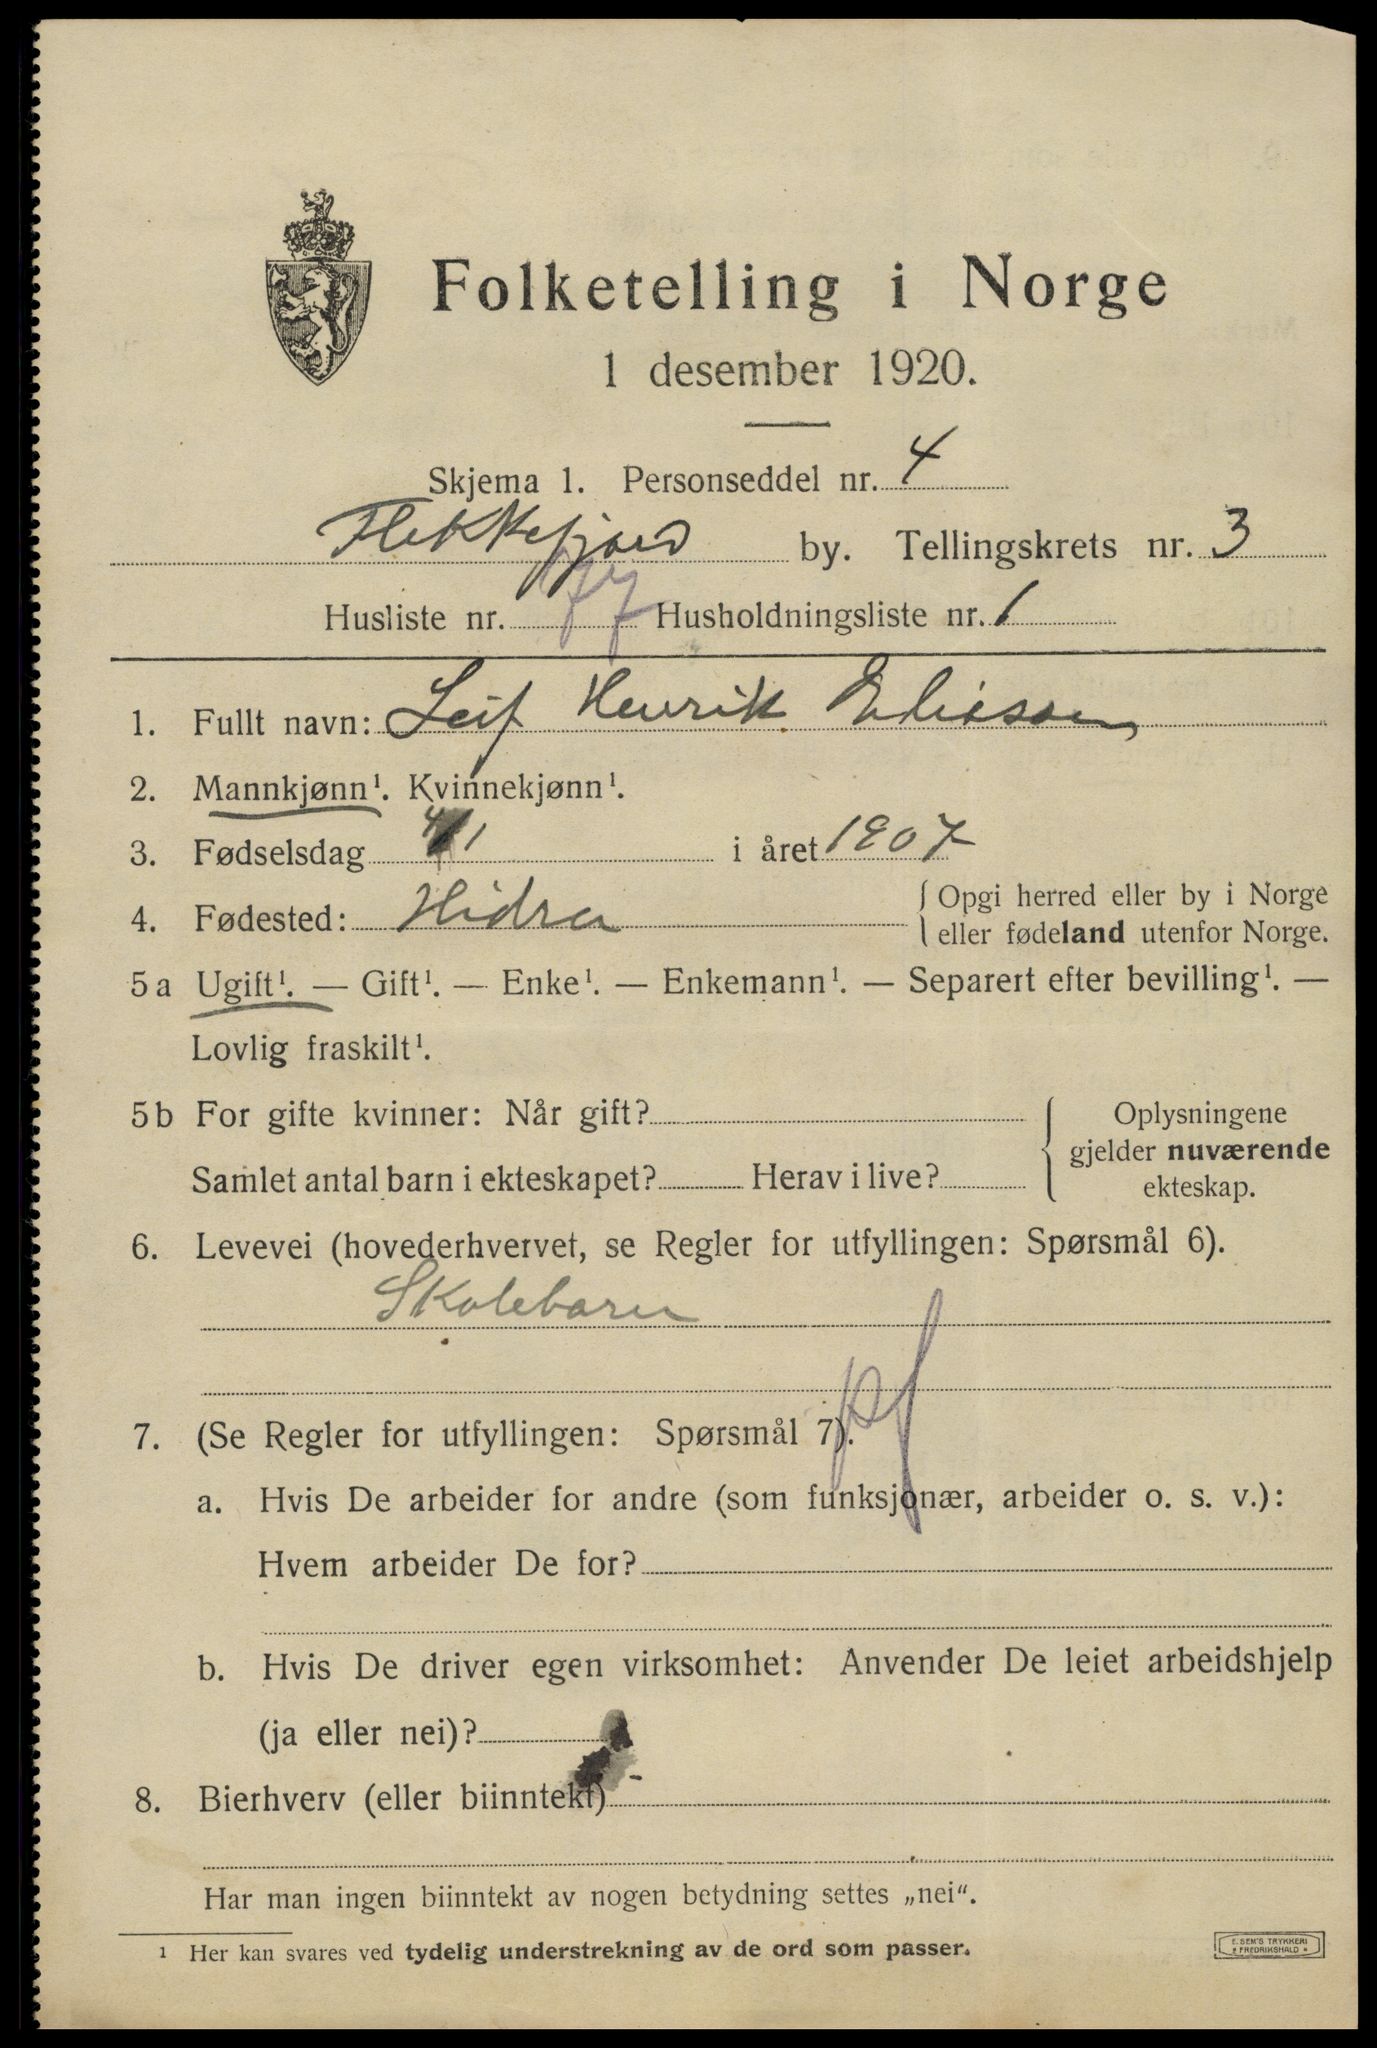 Folketelling i Norge
1 desember 1920.
Skjema 1. Personseddel nr. 4
Flekkefjord by. Tellingskrets nr. 3
Husliste nr. 77 Husholdningsliste nr. 1
1. Fullt navn: Leif Henrik Eliassen
2. Mannkjønn¹. Kvinnekjønn¹.
3. Fødselsdag 4/1 i året 1907
4. Fødested: Hidra { Opgi herred eller by i Norge
eller fødeland utenfor Norge.
5 a Ugift¹. — Gift¹. — Enke¹. — Enkemann¹. — Separert efter bevilling¹. —
Lovlig fraskilt¹.
5 b For gifte kvinner: Når gift? { Oplysningene
gjelder nuværende
Samlet antal barn i ekteskapet? Herav i live? ekteskap.
6. Levevei (hovederhvervet, se Regler for utfyllingen: Spørsmål 6).
Skolebarn
pf
7. (Se Regler for utfyllingen: Spørsmål 7).
a. Hvis De arbeider for andre (som funksjonær, arbeider o. s. v.):
Hvem arbeider De for?
b. Hvis De driver egen virksomhet: Anvender De leiet arbeidshjelp
(ja eller nei)?
8. Bierhverv (eller biinntekt)
Har man ingen biinntekt av nogen betydning settes „nei".
¹ Her kan svares ved tydelig understrekning av de ord som passer.
E. SEM'S TRYKKERI
* FREDRIKSHALD *